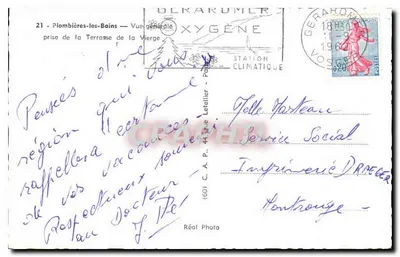 21 - Plombières-les-Bains — Vue générale
prise de la Terrasse de la Vierge
GERARDMER
OXYGÈNE
STATION
CLIMATIQUE
GERARDMER
VOSGES
Pensées d'une
région qui vous
rappellera certaines
de vos vacances
Respectueux souvenir
au Docteur
Real Photo
Melle Marteau
Service Social
Imprimerie DRAEGER
Montrouge